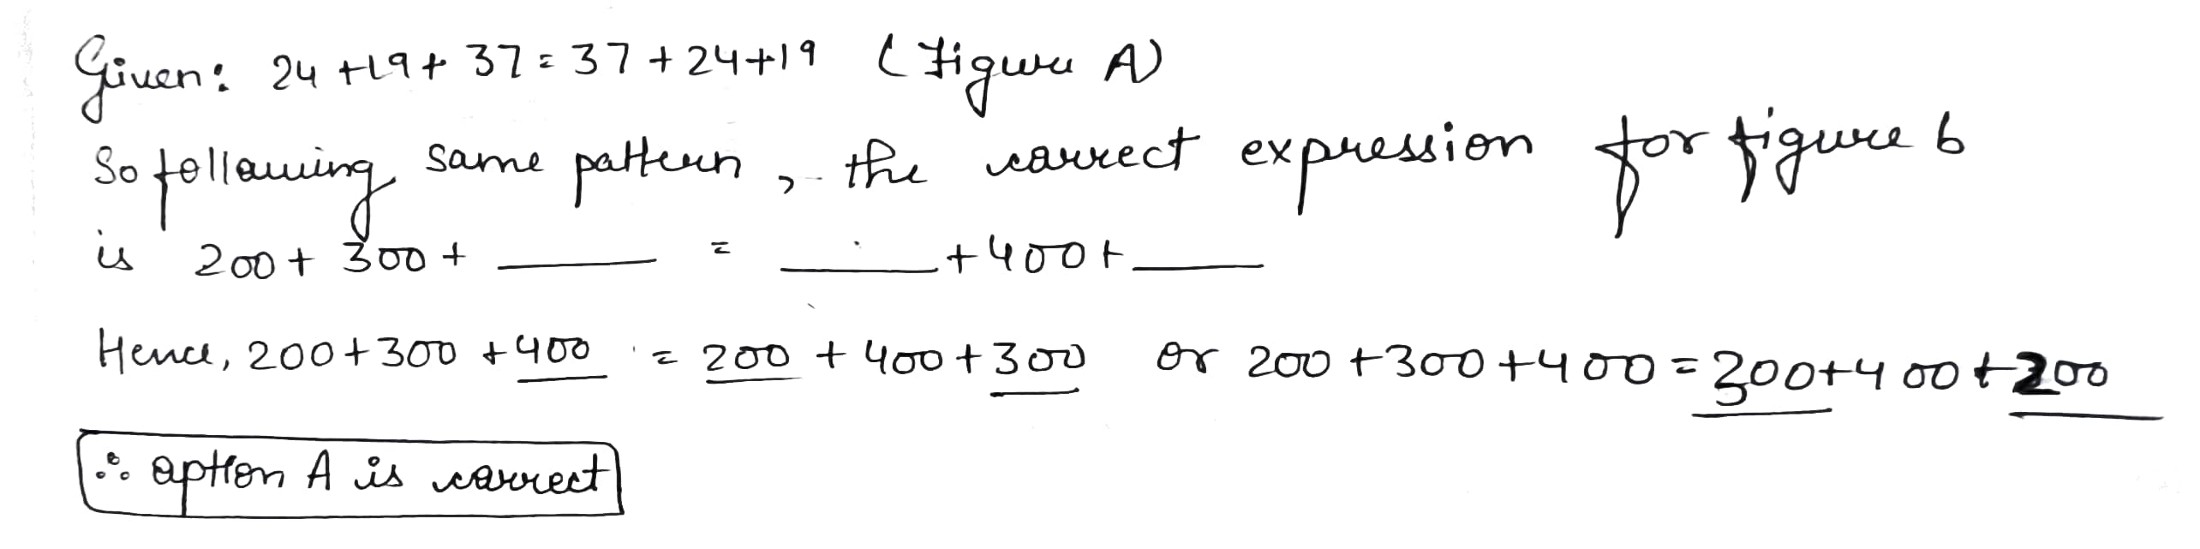 Given: 24 +19+ 37 = 37 + 24+19 (Figure A)
So following same pattern, the correct expression for figure b
is 200 + 300 + ____ = ____ + 400 + ____
Hence, 200+300 +400 = 200 + 400+300 or 200 +300+400=300+400+200
∴ option A is correct